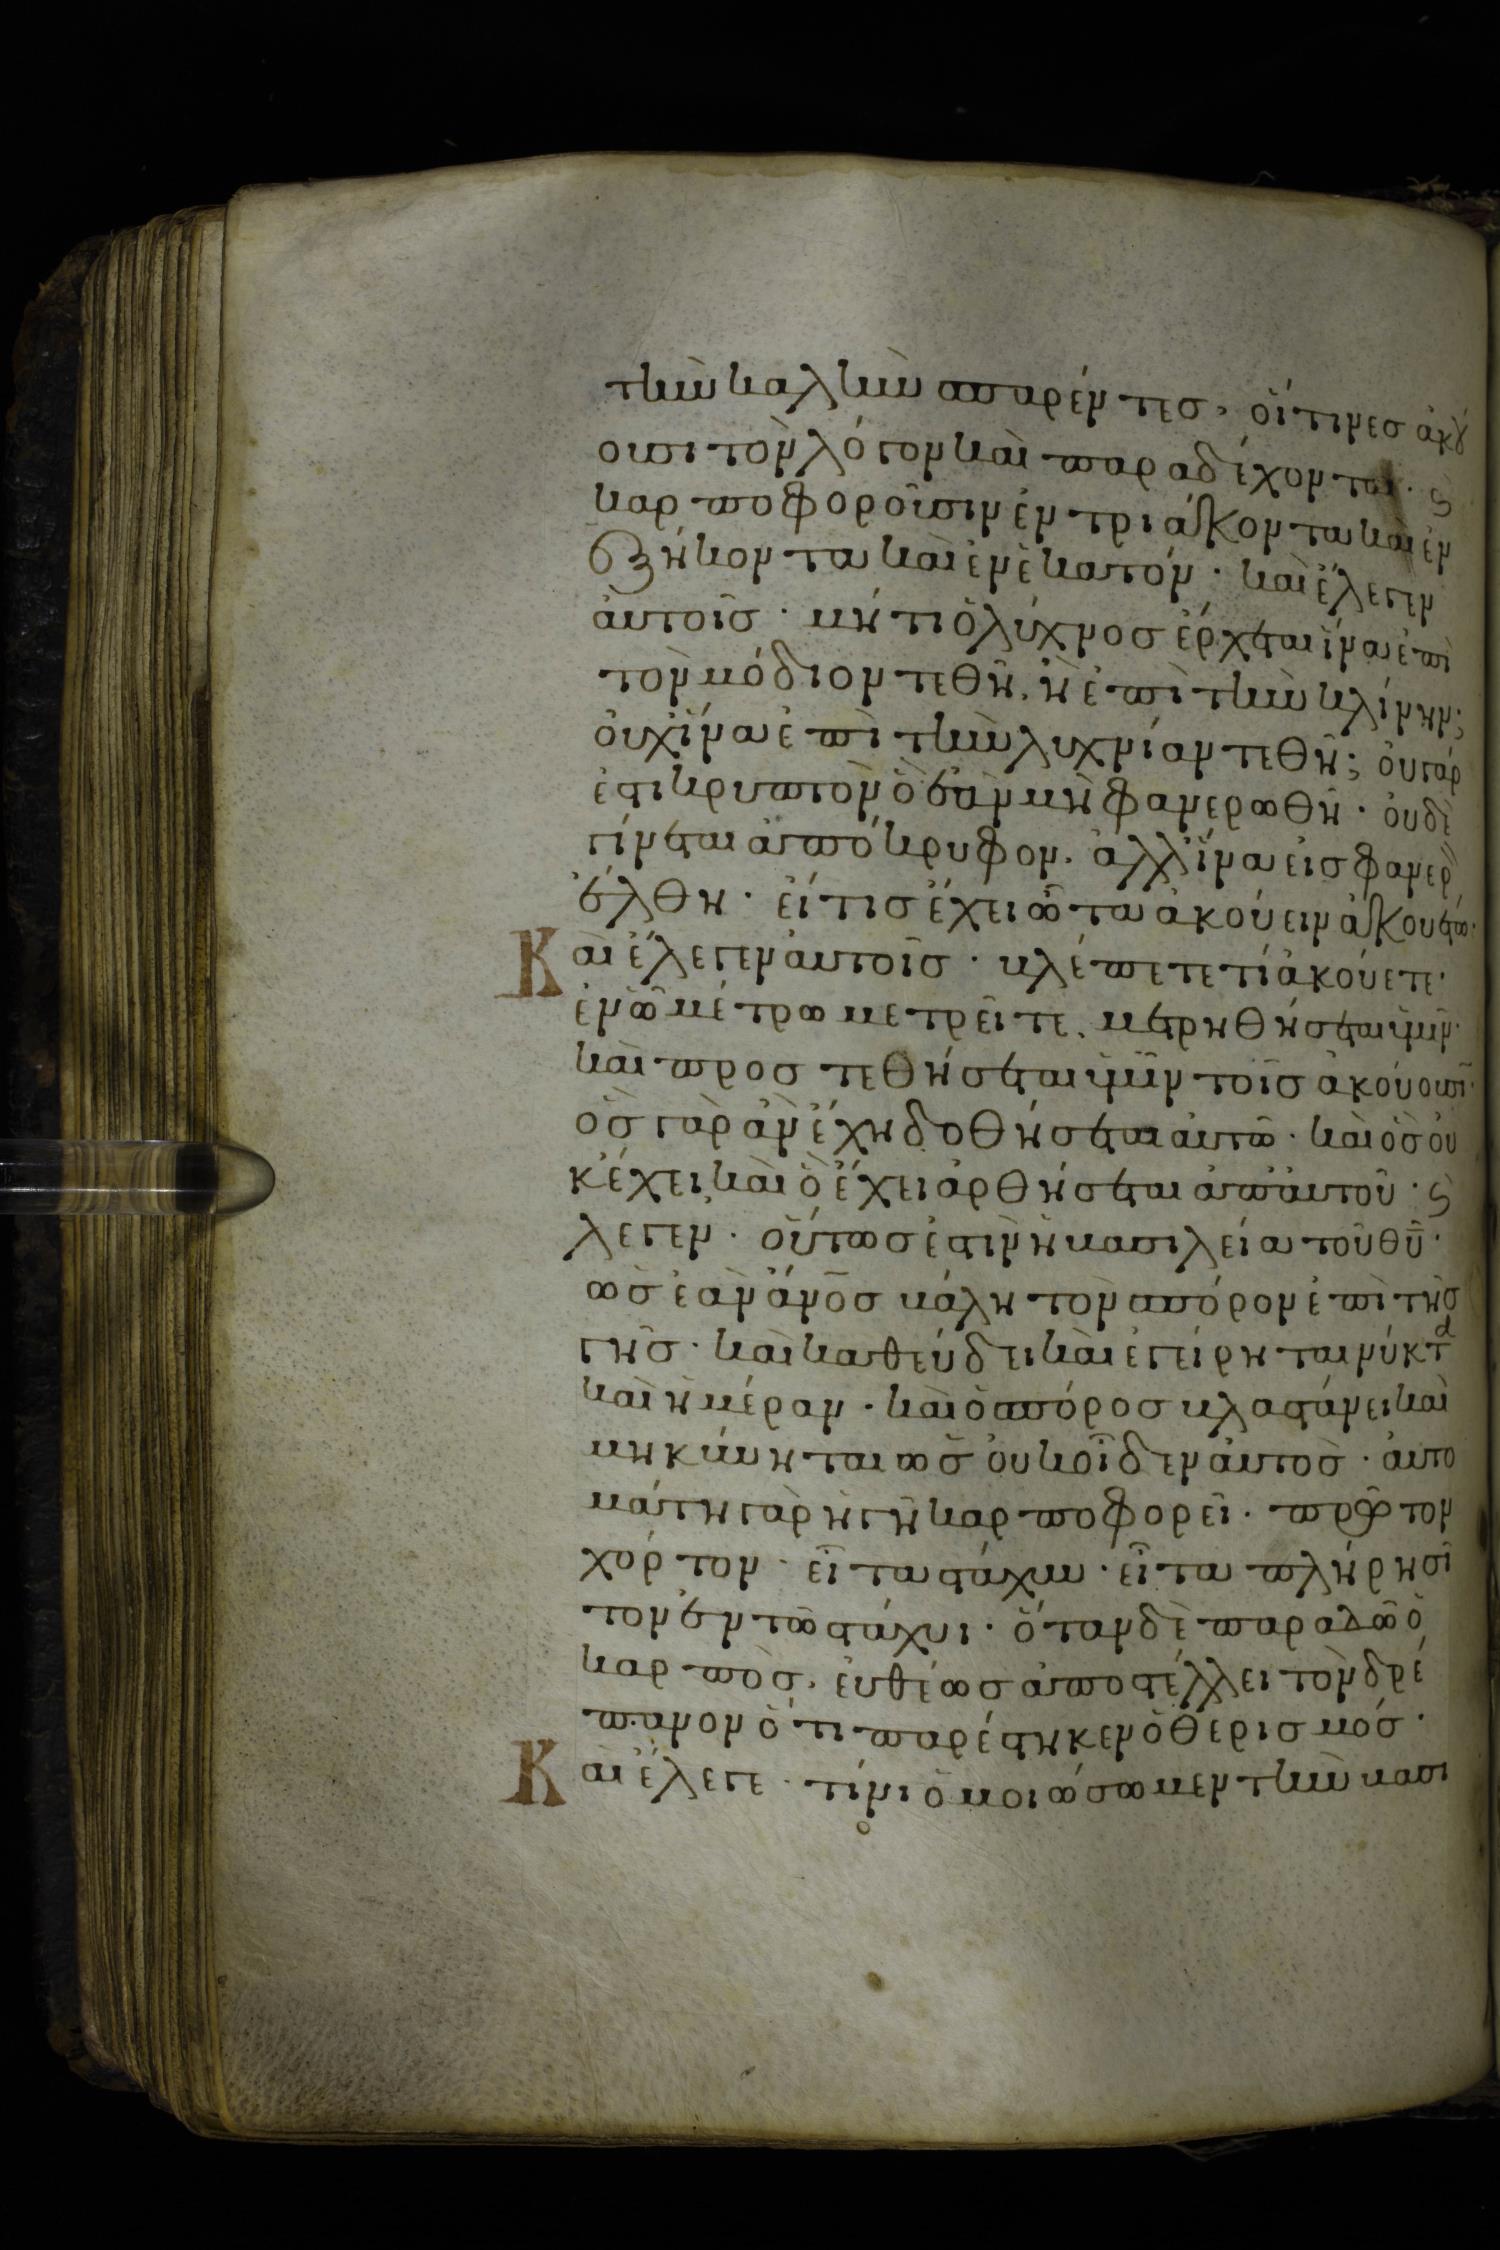 τὴν καλὴν σπαρέντες, οἵτινες ἀκού
ουσι τὸν λόγον καὶ παραδέχονται· ϛ
καρποφοροῦσιν ἐν τριάκοντα καὶ ἐν
ἑξήκοντα καὶ ἐν ἑκατόν· καὶ ἔλεγεν
ἀυτοῖς· μήτι ὁ λύχνος ἔρχεται ἵνα ἐπὶ
τὸν μόδιον τεθῆ, ἢ ἐπὶ τὴν κλίνην;
ὀυχ ἵνα ἐπὶ τὴν λυχνίαν τεθῆ; ὀυ γάρ
ἐστι κρυπτὸν ὃ ἐὰν μὴ φανερωθῆ· ὀυδὲ
γίνεται ἀπόκρυφον, ἀλλ' ἵνα εἰς φανερ
ἔλθη· εἴ τις ἔχει ὦτα ἀκούειν ἀκουέτω·
Καὶ ἔλεγεν ἀυτοῖς· βλέπετε τί ἀκούετε·
ἐν ὧ μέτρω μετρεῖτε, μετρηθήσεται ὑμῖν·
καὶ προστεθήσεται ὑμῖν τοῖς ἀκούουσι·
ὃς γὰρ ἂν ἔχη δοθήσεται ἀυτῶ· καὶ ὃς ὀυ
κ ἔχει, καὶ ὃ ἔχει ἀρθήσεται ἀπ' ἀυτοῦ· ϛ
λεγεν· οὕτως ἐστὶν ἡ βασιλεία τοῦ θῡ·
ὡς ἐὰν ἄνο̄ς βάλη τὸν σπόρον ἐπὶ τῆς
γῆς· καὶ καθεύδει καὶ ἐγείρηται νύκτα
καὶ ἡμέραν· καὶ ὁ σπόρος βλαστάνει καὶ
μηκύνηται ὡς ὀυκ οἶδεν ἀυτός· ἀυτο
μάτη γὰρ ἡ γῆ καρποφορεῖ· πρῶτον
χόρτον· εἶτα στάχυν· εἶτα πλήρη σῖ
τον ἐν τῶ στάχυι· ὅταν δὲ παραδῶ ὁ
καρπὸς, ἐυθέως ἀποστέλλει τὸ δρέ
πανον ὅτι παρέστηκεν ὁ θερισμός·
Καὶ ἔλεγε· τίνι ὁμοιώσωμεν τὴν βασι